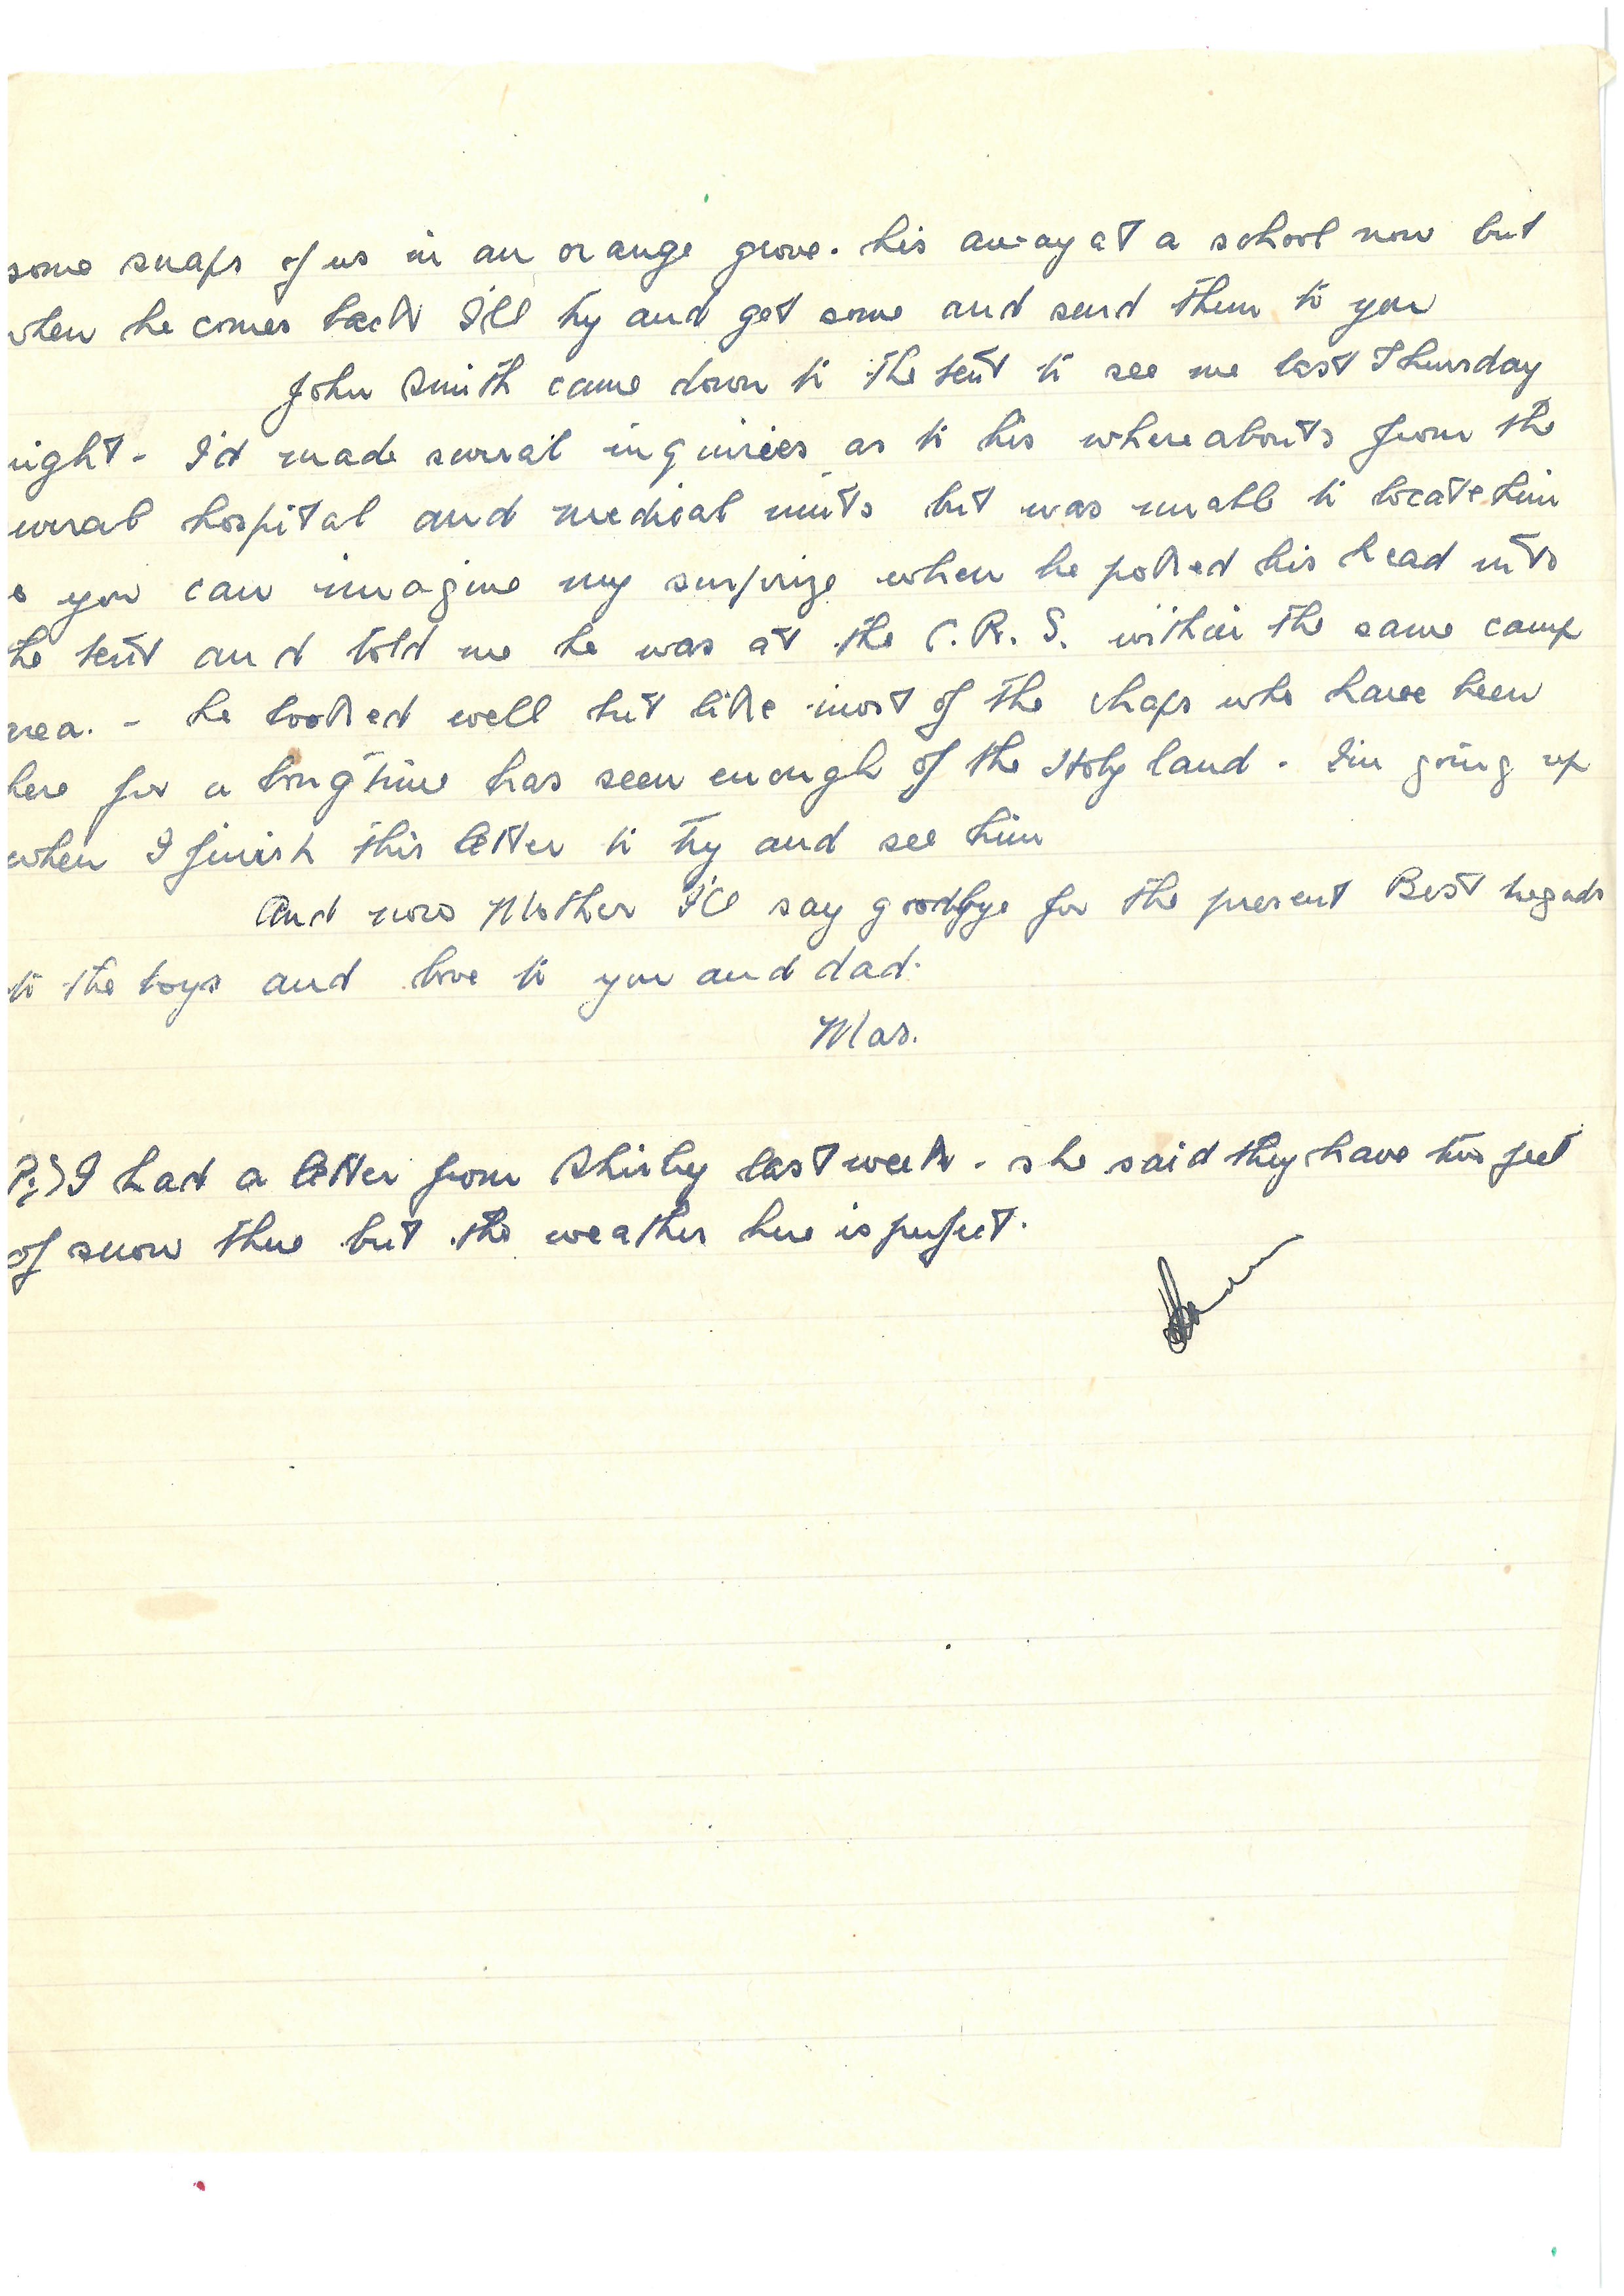 some snaps of us in an orange grove. his away at a school now but
when he comes back I'll try and get some and send them to you
John Smith came down to the tent to see me last Thursday
night - I'd made inquiries as to his whereabouts from the
hospital and medical units but was unable to locate him
you can imagine my surprize when he poked his head into
he tent and told me he was at the C.R.S. within the same camp
rea. - he looked well but like most of the chaps who have been
here for a long time has seen enough of the Holy land - I'm going up
when I finish this letter to try and see him
And now Mother I'll say goodbye for the present Best regards
to the boys and love to you and dad.
Mas.
P.S I had a letter from Shirley last week - she said they have two feet
of snow there but the weather here is perfect.